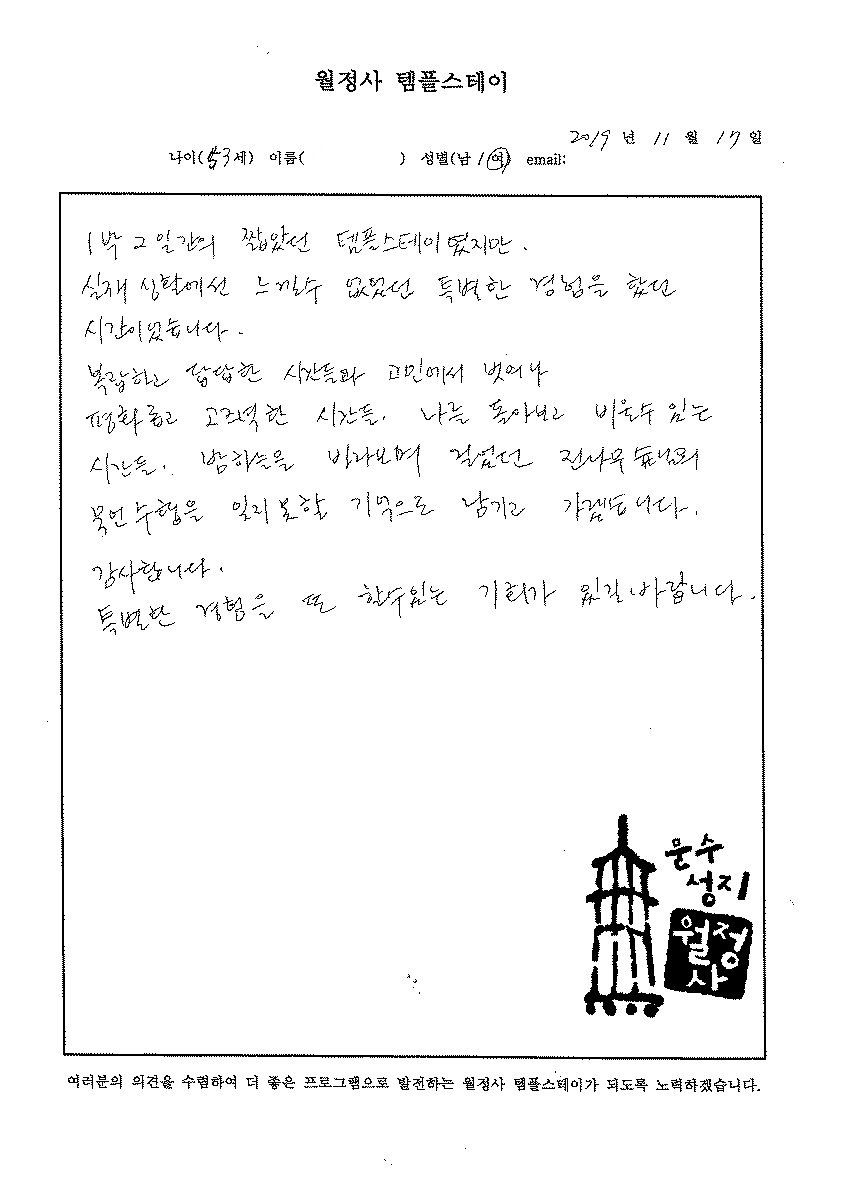 월정사 템플스테이
2019 년 11 월 17 일
나이(53세) 이름( ) 성별(남/여) email:
1박 2일간의 짧았던 템플스테이였지만.
실제 생활에선 느낄수 없었던 특별한 경험을 했던
시간이었습니다.
복잡하고 답답한 시간들과 고민에서 벗어나
평화롭고 고즈넉한 시간들. 나를 돌아보고 비울수 있는
시간들. 밤하늘을 바라보며 걸었던 전나무
묵언수행을 잊지못할 기억으로 남기고 가렵니다.
감사합니다.
특별한 경험을 또 할수있는 기회가 있길 바랍니다.
문수
성지
월정
사
여러분의 의견을 수렴하여 더 좋은 프로그램으로 발전하는 월정사 템플스테이가 되도록 노력하겠습니다.